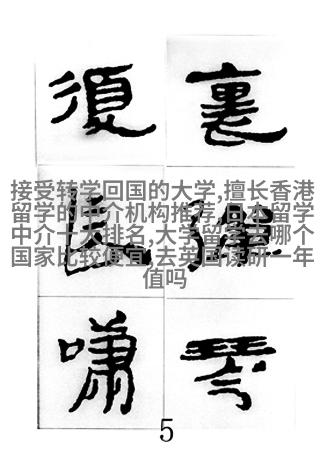 裏彈琴
復長嘯
接受转学回国的大学,擅长香港
留学的中介机构推荐,日本留学
中介十大排名,大学留学去哪个
国家比较便宜,去英国读研一年
值吗
5